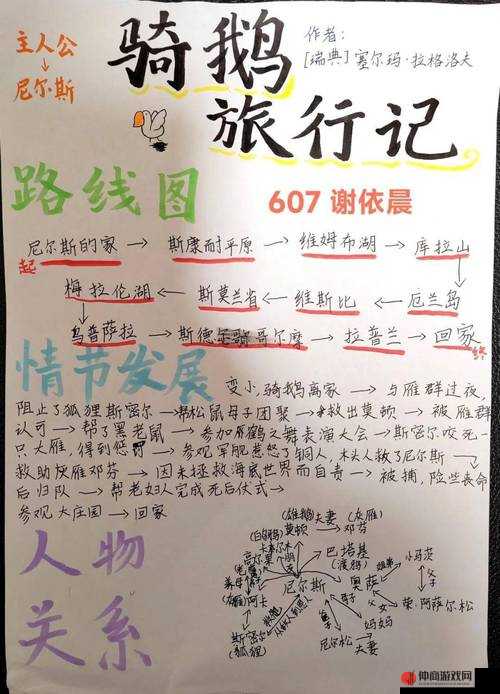 主人公
↓
尼尔斯
骑鹅
旅行记
作者：
[瑞典]塞尔玛·拉格洛夫
路线图
607 谢依晨
尼尔斯的家 → 斯康耐平原 → 维姆布湖 → 库拉山
起
梅拉伦湖 ← 斯莫兰省 ← 维斯比 ← 厄兰岛
乌普萨拉 → 斯德哥尔摩 → 拉普兰 → 回家
终
情节发展
变小,骑鹅离家 → 与雁群过夜,
阻止了狐狸斯密尔 → 帮松鼠母子团聚 → 救出莫顿 → 被雁群
认可 → 帮了黑老鼠 → 参加鹤之舞表演大会 → 斯密尔咬死一
只大雁,得到惩罚 → 参观军舰惹怒了铜人,木头人救了尼尔斯 →
救助灰雁邓芬 → 因未拯救海底世界而自责 → 被捕,险些丧命
后归队 → 帮老妇人完成死后仪式 →
参观大庄园 → 回家
人物
关系
(雄鹅) 夫妻 (灰雁)
(白鹅)
莫顿 邓芬
巴塔基
(渡鸦)
小马茨
姐弟
父子
奥萨
父女
荣·阿萨尔松
尼尔斯
阿卡
斯密尔
(狐狸)
母子
妈妈
尼尔松
夫妻